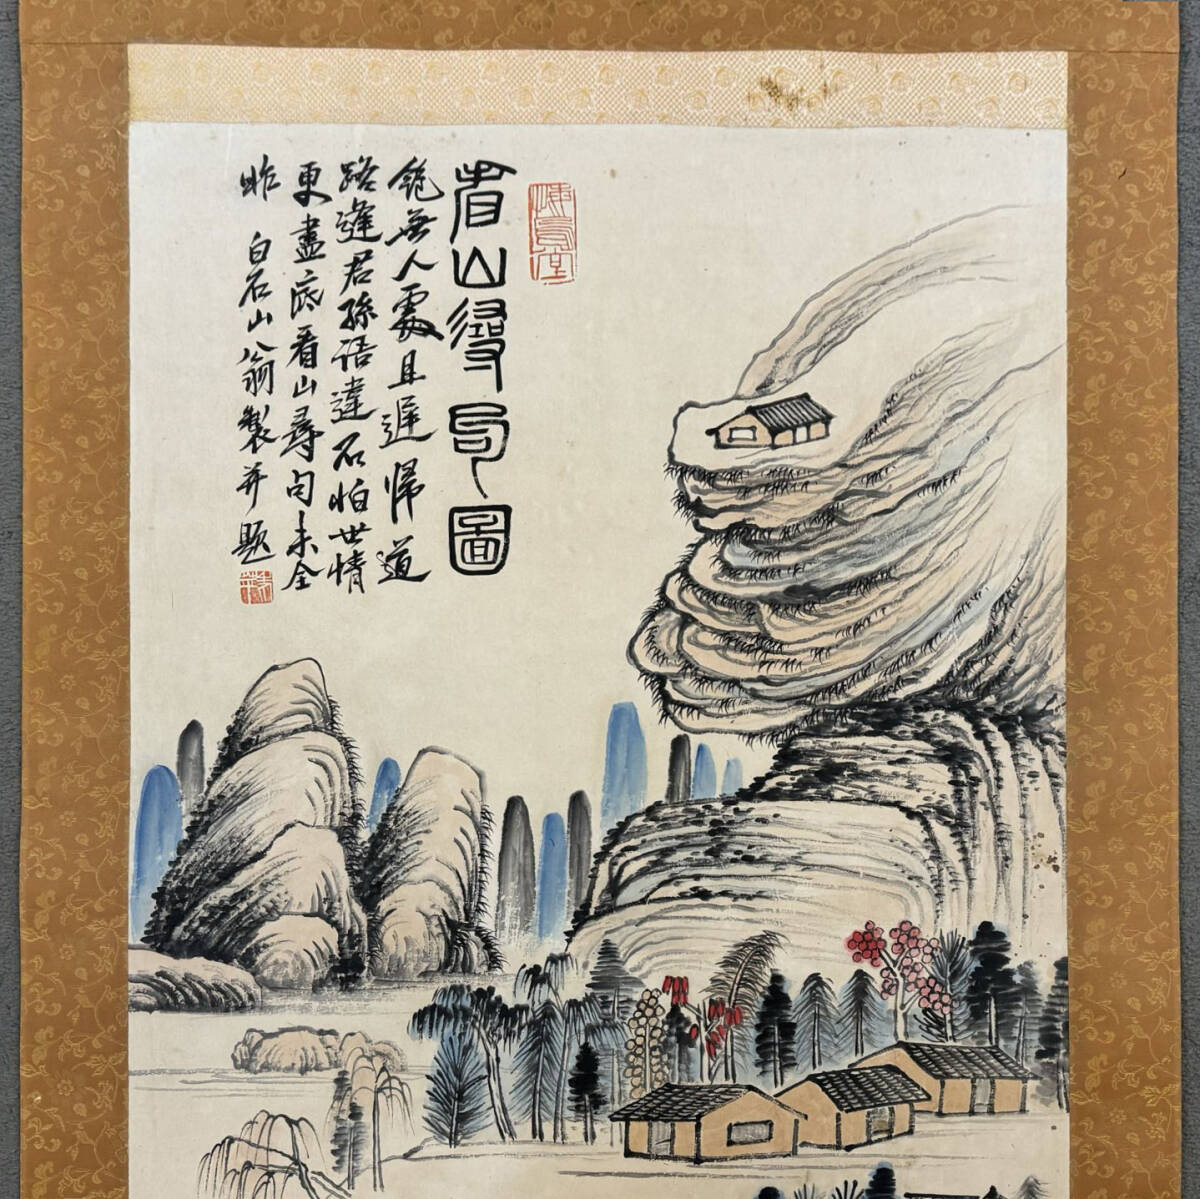 悔烏堂
看山句圖
絕無人處且遲歸道
路逢君孫語違不怕世情
更盡底看山尋句未全
昨 白石山翁製并題